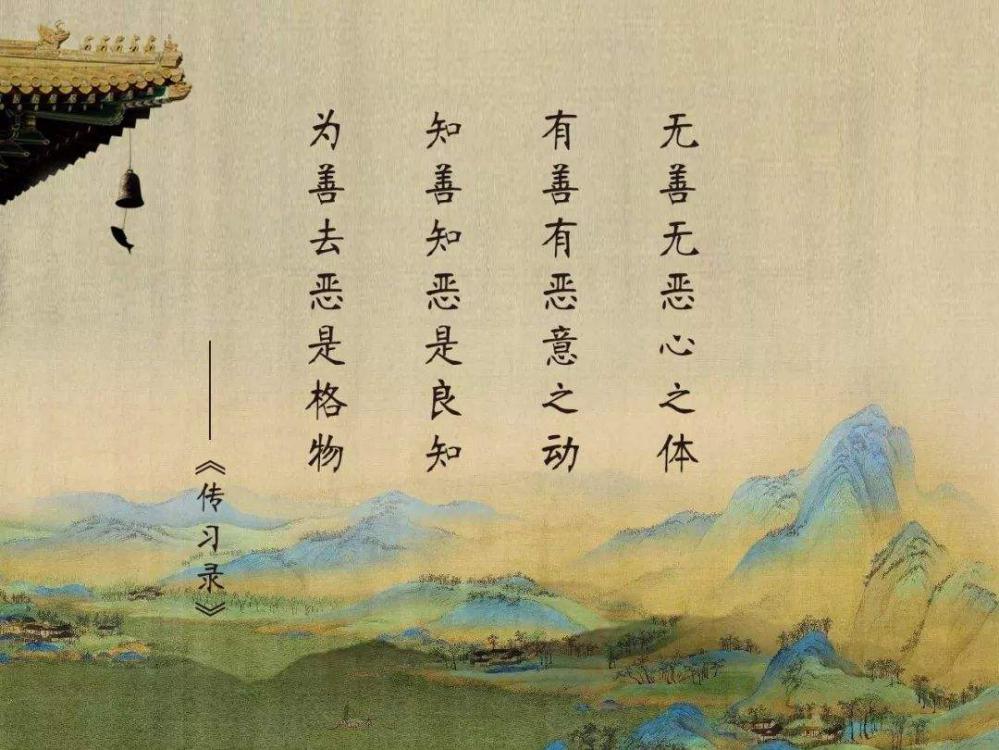 无善无恶心之体
有善有恶意之动
知善知恶是良知
为善去恶是格物
——《传习录》